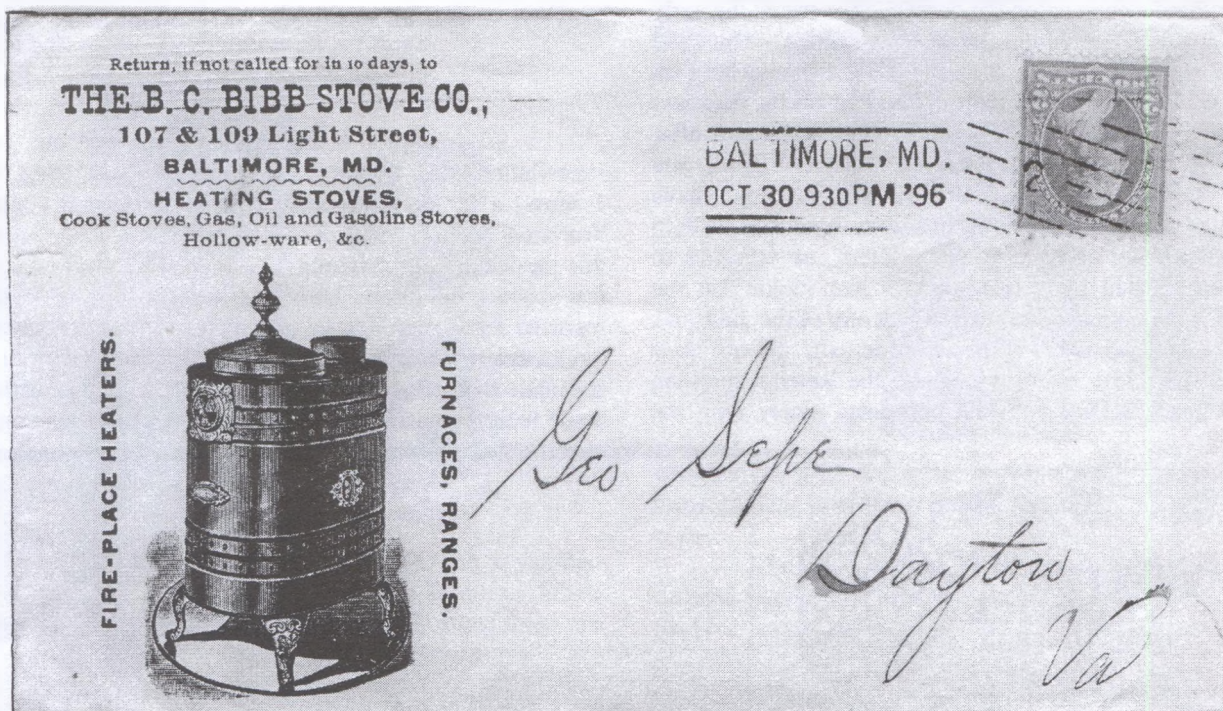 Return, if not called for in 10 days, to
THE B. C. BIBB STOVE CO.,
107 & 109 Light Street,
BALTIMORE, MD.
HEATING STOVES,
Cook Stoves, Gas, Oil and Gasoline Stoves,
Hollow-ware, &c.
FIRE-PLACE HEATERS.
FURNACES, RANGES.
BALTIMORE, MD.
OCT 30 930PM '96
Geo Sepe
Dayton
Va